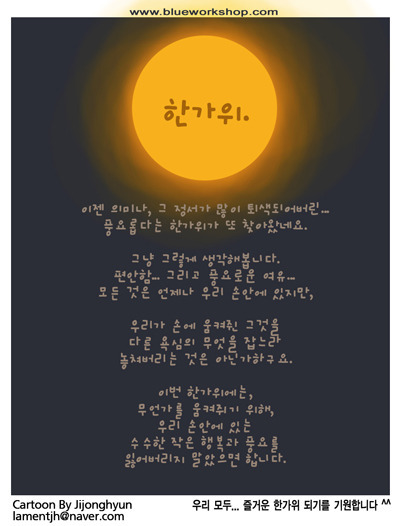 www.blueworkshop.com
한가위.
이젠 의미나, 그 정서가 많이 퇴색되어버린...
풍요롭다는 한가위가 또 찾아왔네요.
그냥 그렇게 생각해봅니다.
편안함... 그리고 풍요로운 여유...
모든 것은 언제나 우리 손안에 있지만,
우리가 손에 움켜쥔 그것을
다른 욕심의 무엇을 잡느라
놓쳐버리는 것은 아닌가하구요.
이번 한가위에는,
무언가를 움켜쥐기 위해,
우리 손안에 있는
수수한 작은 행복과 풍요를
잃어버리지 말았으면 합니다.
Cartoon By Jijonghyun
lamentjh@naver.com
우리 모두... 즐거운 한가위 되기를 기원합니다 ^^